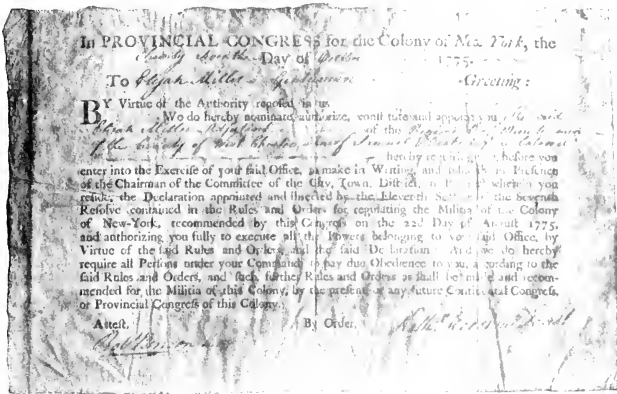 In PROVINCIAL CONGRESS for the Colony of New York, the
Day of 1775.
To Elijah Miller Gentleman Greeting:
BY Virtue of the Authority reposed in us,
We do hereby nominate, authorize, constitute and appoint you the said
Elijah Miller Adjutant of the
of the County of West Chester
hereby requiring you before you
enter into the Exercise of your said Office, to make in Writing, and in the Presence
of the Chairman of the Committee of the City, Town, District, wherein you
reside, the Declaration appointed and directed by the Eleventh Section of the seventh
Resolve contained in the Rules and Orders for regulating the Militia of the Colony
of New-York, recommended by this Congress on the 22d Day of August 1775,
and authorizing you fully to execute all the Powers belonging to your said Office, by
Virtue of the said Rules and Orders, and the said Declaration: And we do hereby
require all Persons under your Command to pay due Obedience to you, according to the
said Rules and Orders, and such further Rules and Orders as shall be made and recom-
mended for the Militia of this Colony, by the present or any future Continental Congress,
or Provincial Congress of this Colony.
Attest. By Order,